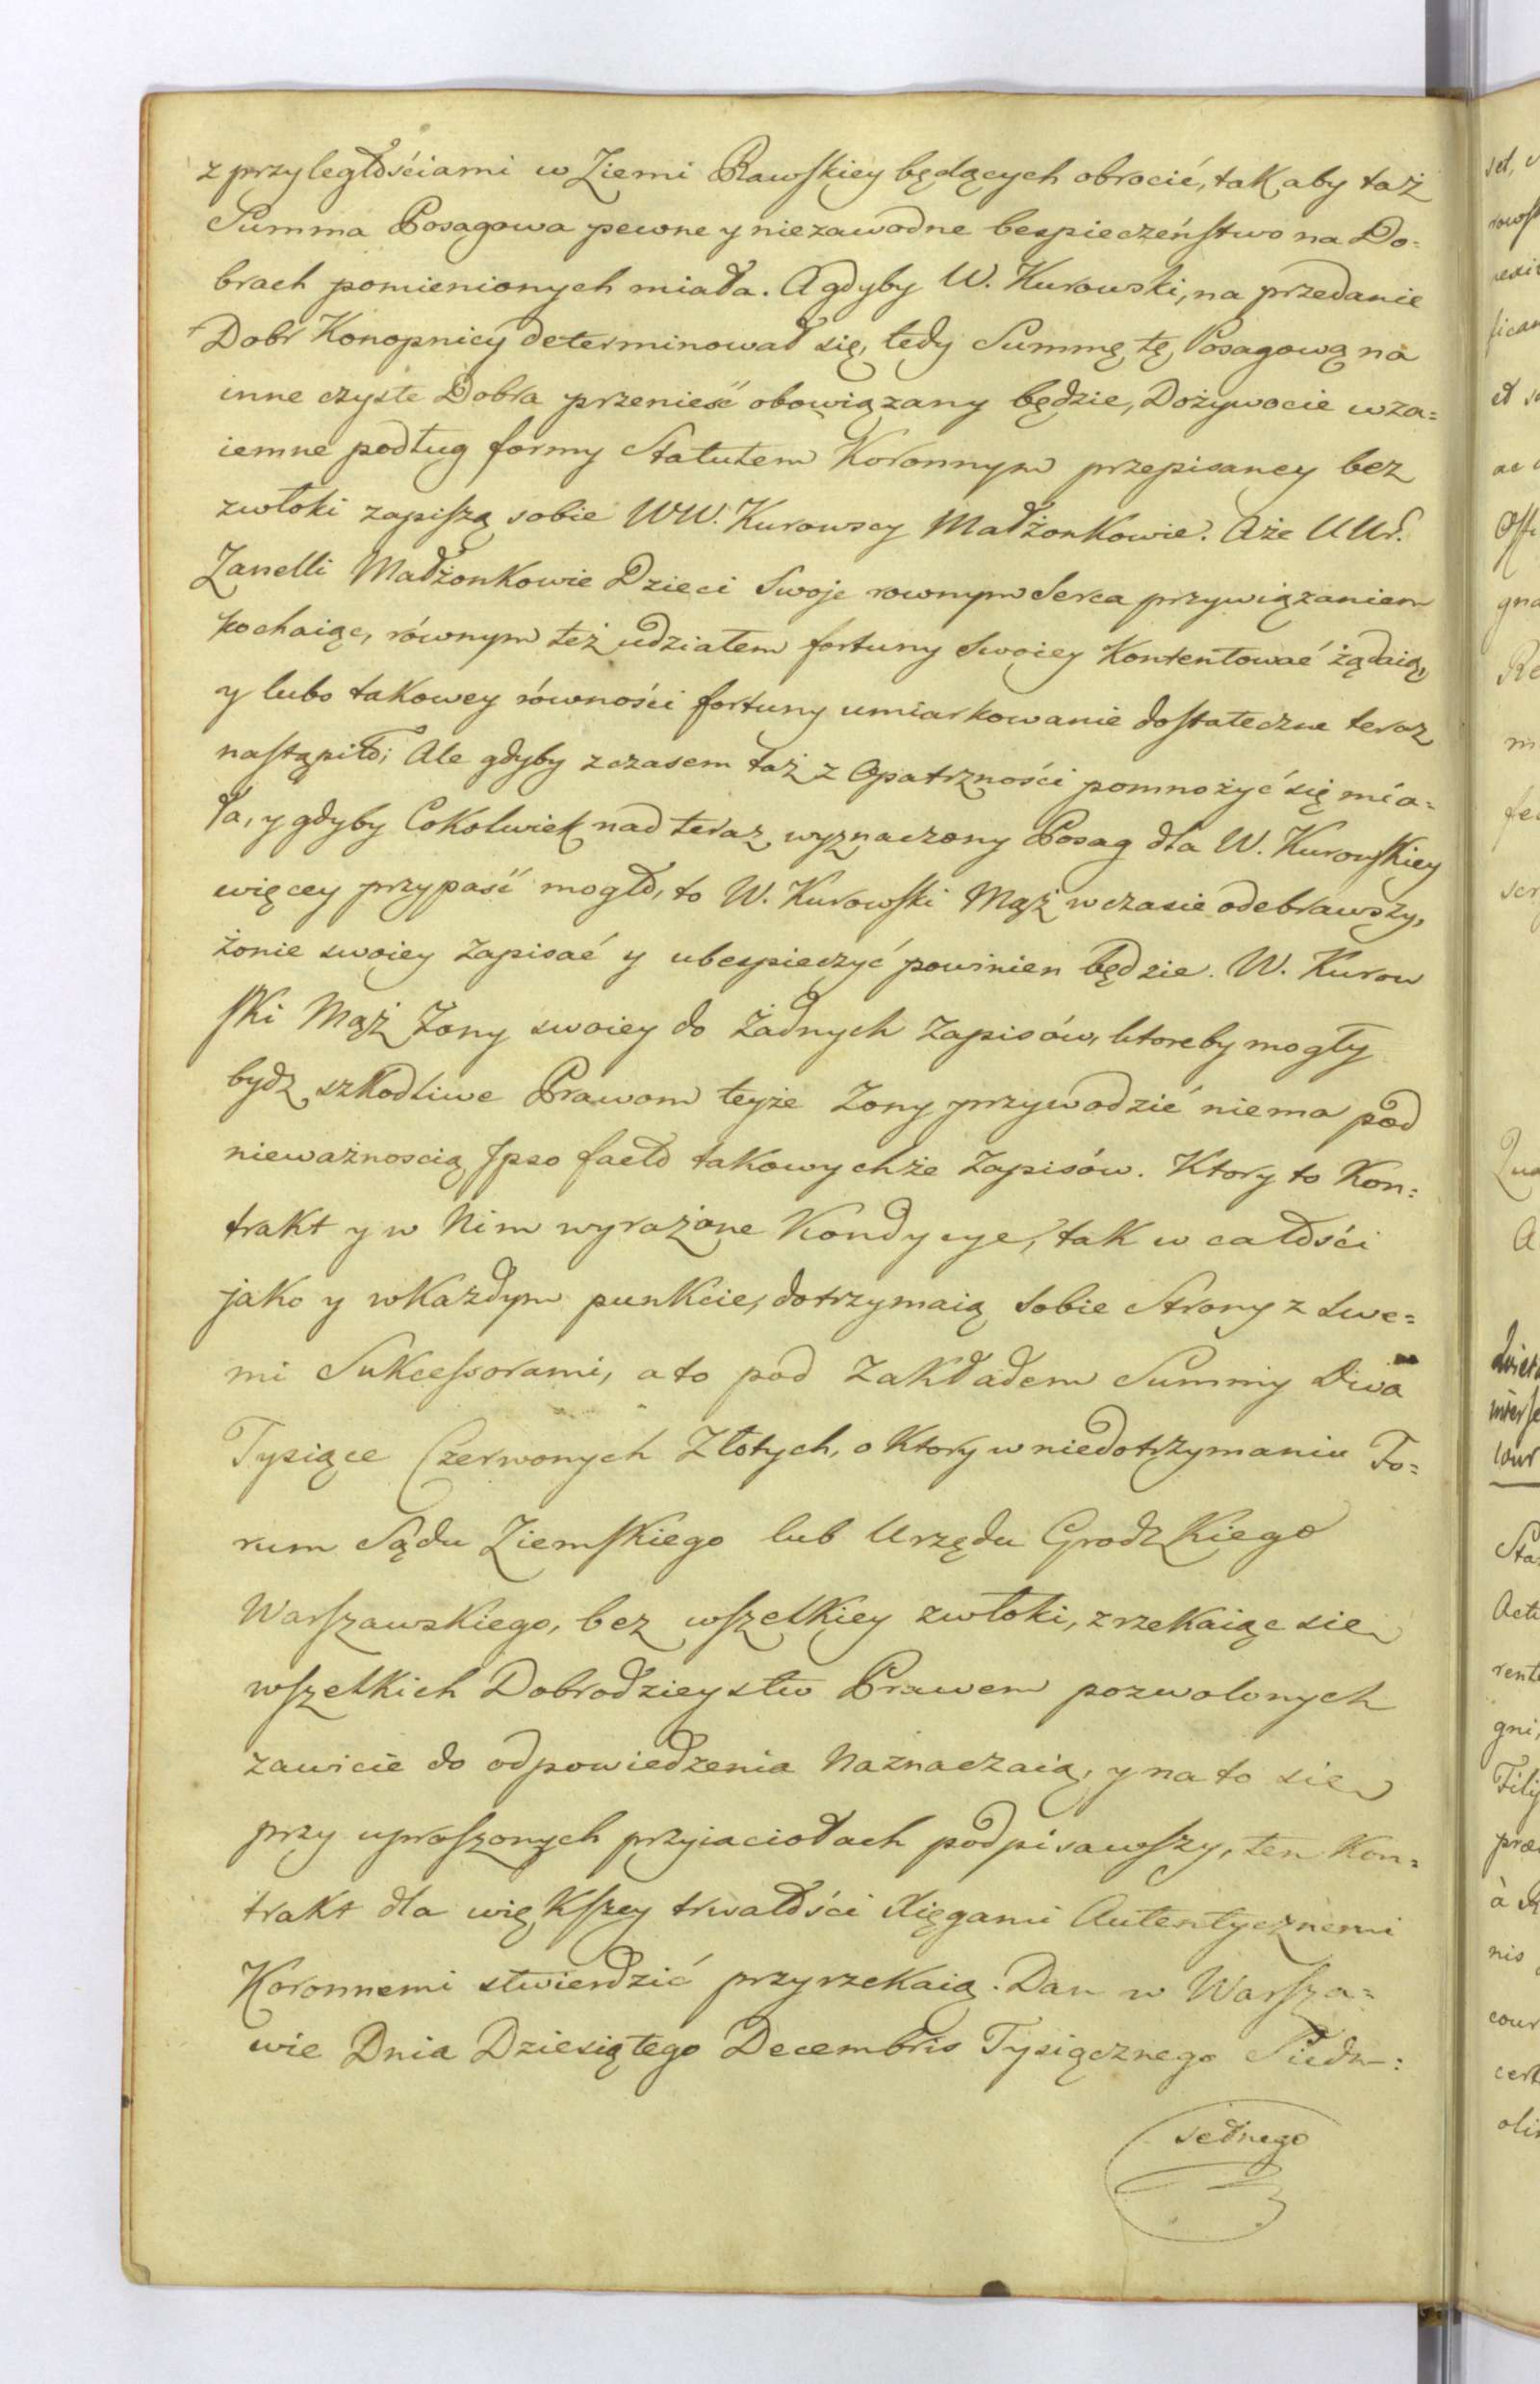 z przyległościami w Ziemi Rawskiey będących obrocić, tak aby taż
Summa Posagowa pewne y niezawodne bespieczeństwo na Do=
brach pomienionych miała. A gdyby W. Kurowski, na przedanie
Dobr Konopnicy determinował się, tedy Summę tę Posagową na
inne czyste Dobra przenieść obowiązany będzie, Dożywocie wza=
iemne podług formy Statutem Koronnym przepisaney bez
zwłoki zapiszą sobie WW. Kurowscy Małżonkowie. A że UUr.
Zanelli Małżonkowie Dzieci Swoje rownym Serca przywiązaniem
kochaiąc, równym też udziałem fortuny Swoiey Kontentować żądaią,
y lubo takowey równości fortuny umiarkowanie dostateczne teraz
nastąpiło; Ale gdyby z czasem taż z Opatrzności pomnożyć się mia=
ła, y gdyby Cokolwiek nad teraz wyznaczony Posag dla W. Kurowskiey
więcey przypaść mogło, to W. Kurowski Mąż w czasie odebrawszy,
żonie swoiey zapisać y ubespieczyć powinien będzie. W. Kurow
ski Mąż Żony swoiey do żadnych zapisów, ktoreby mogły
bydz szkodliwe Prawom teyże Żony przywodzić niema pod
nieważnoscią Ipso facto takowychże zapisów. Ktory to Kon=
trakt y w Nim wyrażone Kondycye, tak w całości
jako y w Każdym punkcie, dotrzymaią sobie Strony z swe=
mi Sukcessorami, a to pod Zakładem Summy Dwa
Tysiące Czerwonych Złotych, o Ktory w niedotrzymaniu Fo=
rum Sądu Ziemskiego lub Urzędu Grodzkiego
Warszawskiego, bez wszelkiey zwłoki, zrzekaiąc sie
wszelkich Dobrodzieystw Prawem pozwolonych
zawicie do odpowiedzenia Naznaczaią, y na to sie
przy uproszonych przyiaciołach podpisawszy, ten Kon=
trakt dla większey trwałości Xięgami Autentycznemi
Koronnemi stwierdzić przyrzekaią. Dan w Warsza=
wie Dnia Dziesiątego Decembris Tysiącznego Siedm=
setnego